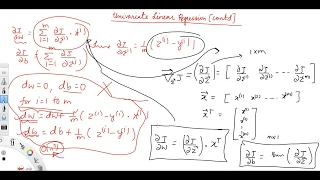 Univariate Linear Regression [contd]
∂J/∂w = Σ_{i=1}^{m} ∂J/∂z⁽ⁱ⁾ · x⁽ⁱ⁾
∂J/∂b = Σ_{i=1}^{m} ∂J/∂z⁽ⁱ⁾
where ∂J/∂z⁽ⁱ⁾ = 1/m (z⁽ⁱ⁾ - y⁽ⁱ⁾)
dw = 0, db = 0
for i = 1 to m
dw = dw + 1/m (z⁽ⁱ⁾ - y⁽ⁱ⁾) · x⁽ⁱ⁾
db = db + 1/m (z⁽ⁱ⁾ - y⁽ⁱ⁾)
1 x m
J = (∂J/∂Z) = [ ∂J/∂z⁽¹⁾ ∂J/∂z⁽²⁾ ... ∂J/∂z⁽ᵐ⁾ ]
x = [ x⁽¹⁾ x⁽²⁾ ... x⁽ᵐ⁾ ]
xᵀ = [ x⁽¹⁾ x⁽²⁾ ... x⁽ᵐ⁾ ]
m x 1
∂J/∂w = (∂J/∂Z) · xᵀ
∂J/∂b = Sum (∂J/∂Z)